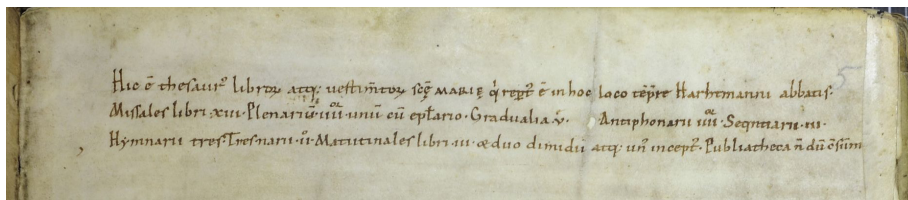 Hic ē thesaurꝰ libroꝝ atq; vestim̄toꝝ sc̄ę MARIĘ q̇ reꝑtꝰ ē in hoc loco tēp̄re Harhtmanni abbatis.
Missales libri·xııı·Plenariū·ıııı·unū cū ep̄lario·Gradualia·v· Antiphonarii ıııı·Seqn̄tiarii·ııı·
Hymnarii tres·Tresnarii·ıı·Matutinales libri·ııı·& duo dimidii atq; un̄ inceptꝰ·Publiatheca n̄ dū c̄sūm